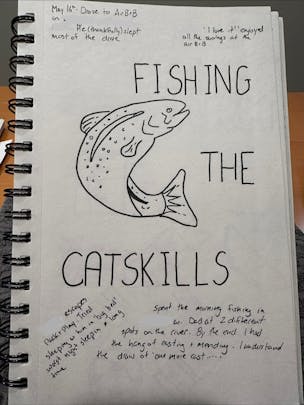 May 16th - Drove to Air B+B
in .
He (thankfully) slept
most of the drive
"I love it!" enjoyed
all the swings at the
air B+B
FISHING
THE
CATSKILLS
escapes
Pack+Play. Tried
sleeping w him in 'big bed'
worst night sleeping in a long
time
Spent the morning fishing in
w. Dad at 2 different
spots on the river. By the end I had
the hang of casting + mending. I understand
the draw of 'one more cast....'